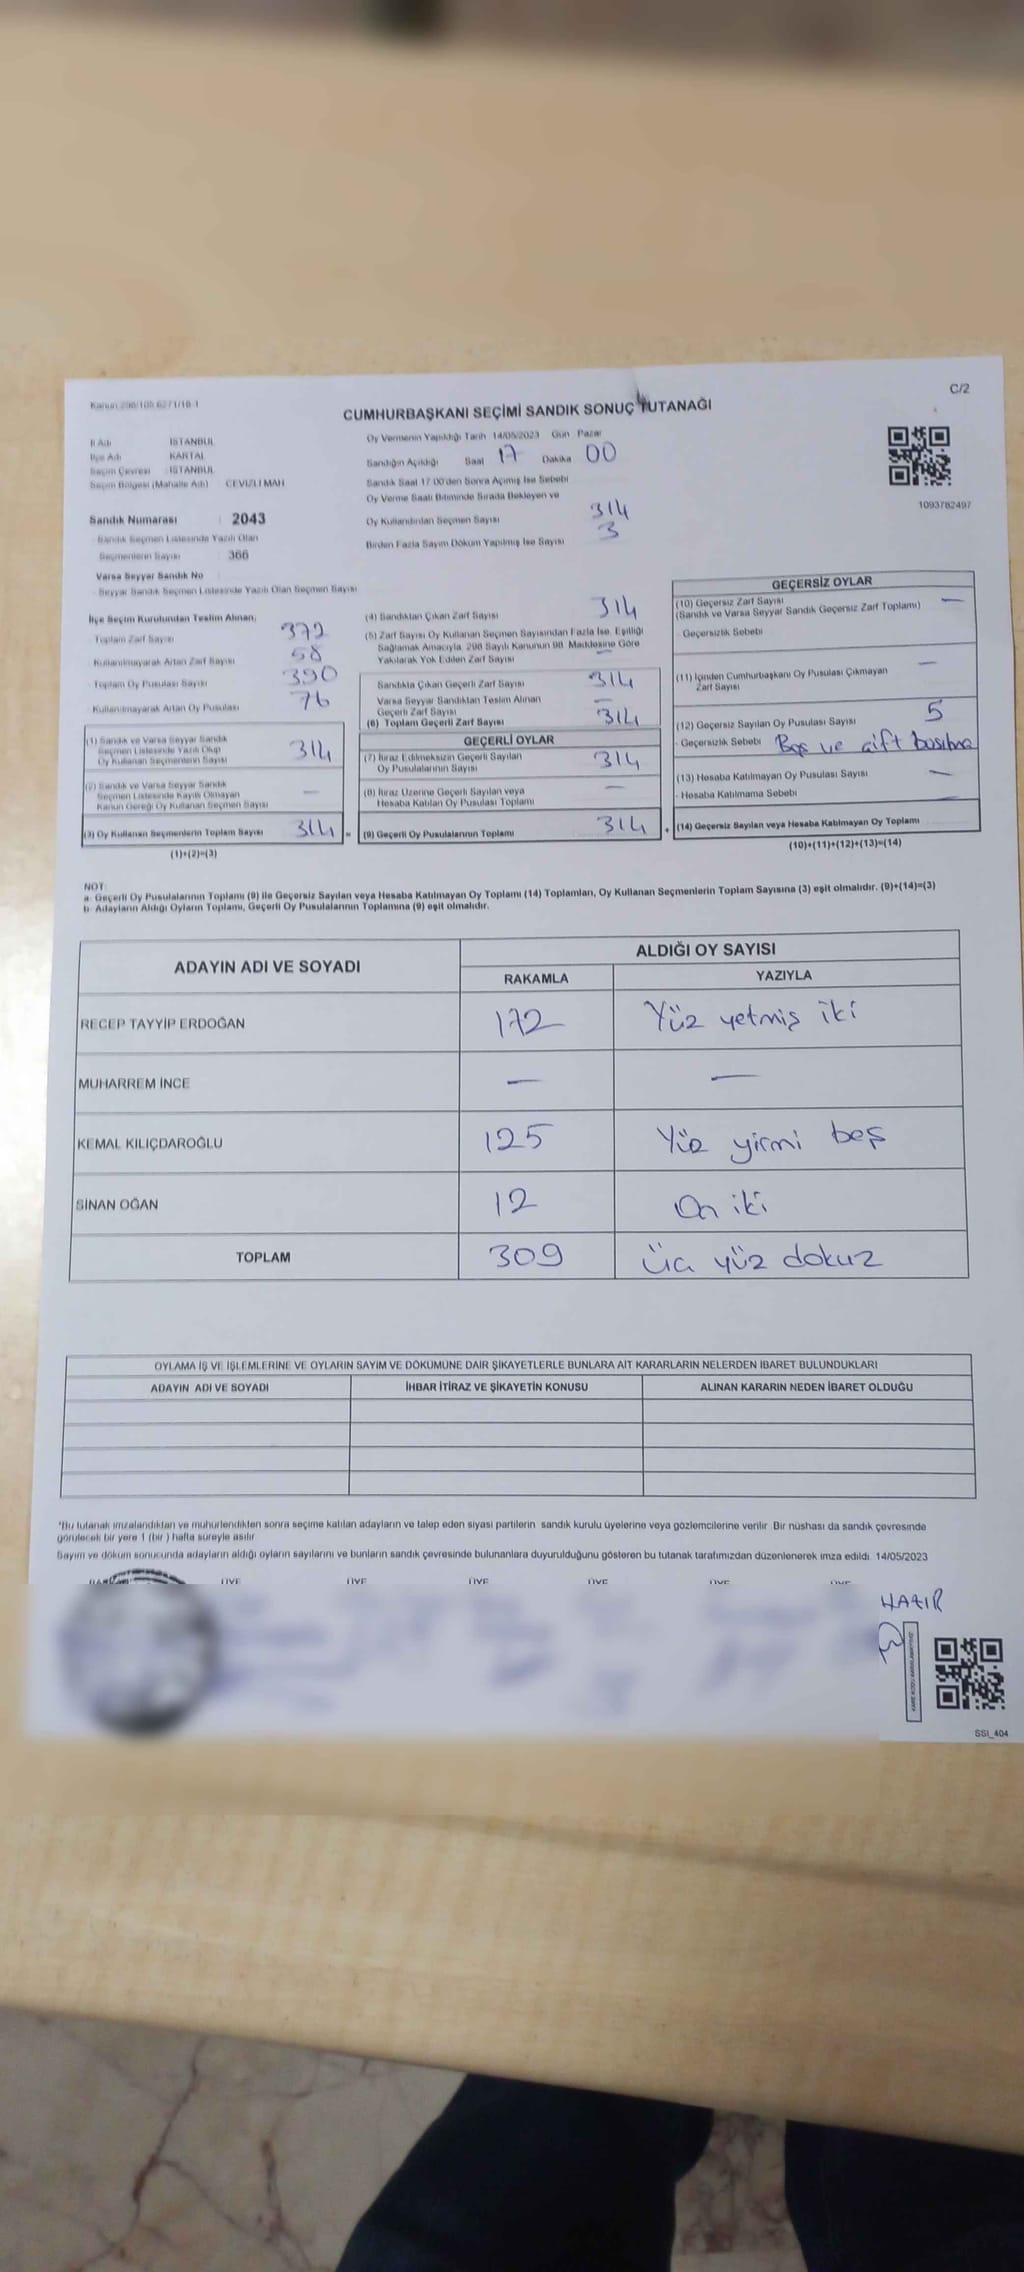 Kanun 298/105 6271/18-1
C/2
CUMHURBAŞKANI SEÇİMİ SANDIK SONUÇ TUTANAĞI
İl Adı İSTANBUL
İlçe Adı KARTAL
Seçim Çevresi İSTANBUL
Seçim Bölgesi (Mahalle Adı) CEVİZLİ MAH
Sandık Numarası : 2043
- Sandık Seçmen Listesinde Yazılı Olan
Seçmenlerin Sayısı : 366
Varsa Seyyar Sandık No
- Seyyar Sandık Seçmen Listesinde Yazılı Olan Seçmen Sayısı
Oy Vermenin Yapıldığı Tarih 14/05/2023 Gün Pazar
Sandığın Açıldığı Saat 17 Dakika 00
Sandık Saat 17:00'den Sonra Açmış İse Sebebi
Oy Verme Saati Bitiminde Sırada Bekleyen ve
Oy Kullandırılan Seçmen Sayısı 314
Birden Fazla Sayım Döküm Yapılmış İse Sayısı 3
1093782497
İlçe Seçim Kurulundan Teslim Alınan;
Toplam Zarf Sayısı 372
Kullanılmayarak Artan Zarf Sayısı 58
Toplam Oy Pusulası Sayısı 390
Kullanılmayarak Artan Oy Pusulası 76
(1) Sandık ve Varsa Seyyar Sandık
Seçmen Listesinde Yazılı Olup
Oy Kullanan Seçmenlerin Sayısı 314
(2) Sandık ve Varsa Seyyar Sandık
Seçmen Listesinde Kayıtlı Olmayan
Kanun Gereği Oy Kullanan Seçmen Sayısı —
(3) Oy Kullanan Seçmenlerin Toplam Sayısı 314 =
(1)+(2)=(3)
(4) Sandıktan Çıkan Zarf Sayısı 314
(5) Zarf Sayısı Oy Kullanan Seçmen Sayısından Fazla İse, Eşitliği
Sağlamak Amacıyla, 298 Sayılı Kanunun 98. Maddesine Göre
Yakılarak Yok Edilen Zarf Sayısı —
Sandıkta Çıkan Geçerli Zarf Sayısı 314
Varsa Seyyar Sandıktan Teslim Alınan
Geçerli Zarf Sayısı —
(6) Toplam Geçerli Zarf Sayısı 314
GEÇERLİ OYLAR
(7) İtiraz Edilmeksizin Geçerli Sayılan
Oy Pusulalarının Sayısı 314
(8) İtiraz Üzerine Geçerli Sayılan veya
Hesaba Katılan Oy Pusulası Toplamı —
(9) Geçerli Oy Pusulalarının Toplamı 314 +
GEÇERSİZ OYLAR
(10) Geçersiz Zarf Sayısı —
(Sandık ve Varsa Seyyar Sandık Geçersiz Zarf Toplamı)
- Geçersizlik Sebebi
(11) İçinden Cumhurbaşkanı Oy Pusulası Çıkmayan
Zarf Sayısı —
(12) Geçersiz Sayılan Oy Pusulası Sayısı 5
- Geçersizlik Sebebi Boş ve çift basılma
(13) Hesaba Katılmayan Oy Pusulası Sayısı —
- Hesaba Katılmama Sebebi —
(14) Geçersiz Sayılan veya Hesaba Katılmayan Oy Toplamı
(10)+(11)+(12)+(13)=(14)
NOT:
a- Geçerli Oy Pusulalarının Toplamı (9) ile Geçersiz Sayılan veya Hesaba Katılmayan Oy Toplamı (14) Toplamları, Oy Kullanan Seçmenlerin Toplam Sayısına (3) eşit olmalıdır. (9)+(14)=(3)
b- Adayların Aldığı Oyların Toplamı, Geçerli Oy Pusulalarının Toplamına (9) eşit olmalıdır.
ADAYIN ADI VE SOYADI
ALDIĞI OY SAYISI
RAKAMLA YAZIYLA
RECEP TAYYİP ERDOĞAN 172 Yüz yetmiş iki
MUHARREM İNCE — —
KEMAL KILIÇDAROĞLU 125 Yüz yirmi beş
SİNAN OĞAN 12 On iki
TOPLAM 309 Üç yüz dokuz
OYLAMA İŞ VE İŞLEMLERİNE VE OYLARIN SAYIM VE DÖKÜMÜNE DAİR ŞİKAYETLERLE BUNLARA AİT KARARLARIN NELERDEN İBARET BULUNDUKLARI
ADAYIN ADI VE SOYADI İHBAR İTİRAZ VE ŞİKAYETİN KONUSU ALINAN KARARIN NEDEN İBARET OLDUĞU
*Bu tutanak imzalandıktan ve mühürlendikten sonra seçime katılan adayların ve talep eden siyasi partilerin sandık kurulu üyelerine veya gözlemcilerine verilir. Bir nüshası da sandık çevresinde
görülecek bir yere 1 (bir ) hafta süreyle asılır.
Sayım ve döküm sonucunda adayların aldığı oyların sayılarını ve bunların sandık çevresinde bulunanlara duyurulduğunu gösteren bu tutanak tarafımızdan düzenlenerek imza edildi. 14/05/2023
ÜYE ÜYE ÜYE ÜYE ÜYE ÜYE
HAZIR
SSI_404